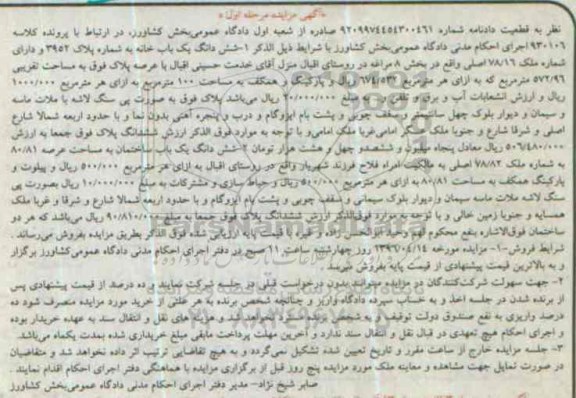 «آگهی مزایده مرحله اول»
نظر به قطعیت دادنامه شماره ۹۲۰۹۹۷۴۴۵۴۳۰۰۴۶۱ صادره از شعبه اول دادگاه عمومی‌بخش کشاورز، در ارتباط با پرونده کلاسه
۹۳۰۱۰۶ اجرای احکام مدنی دادگاه عمومی‌بخش کشاورز با شرایط ذیل الذکر ۱-شش دانگ یک باب خانه به شماره پلاک ۳۹۵۲ و دارای
شماره ملک ۷۸/۱۶ اصلی واقع در بخش ۸ مراغه در روستای اقبال منزل آقای خدمت حسینی اقبال با عرصه پلاک فوق به مساحت تقریبی
۵۷۲/۹۶ مترمربع که به ازای هر مترمربع ریال و پارکینگ و همکف به مساحت ۱۰۰ مترمربع به ازای هر مترمربع
ریال و ارزش انشعابات آب و برق و تلفن و مبلغ ۲۰/۰۰۰/۰۰۰ ریال می‌باشد پلاک فوق به صورت پی سنگ لاشه با ملات ماسه
و سیمان و دیوار بلوک چهل سانتیمتر و سقف چوبی و پشت بام ایزوگام و درب و پنجره آهنی بدون نما و با حدود اربعه شمالا شارع
اصلی و شرقا شارع و جنوبا ملک عسگر امامی غربا ملک امامی و با توجه به موارد فوق الذکر ارزش ششدانگ پلاک فوق جمعا به ارزش
۵۰/۶۴۸۰/۰۰۰ ریال معادل پنجاه میلیون و ششصدو چهل و هشت هزار تومان ۲-شش دانگ یک باب ساختمان به مساحت عرصه ۸۰/۸۱
به شماره ملک ۷۸/۸۲ اصلی به مالکیت امراه فلاح فرزند شهریار واقع در روستای اقبال به ازای هر مترمربع ۵۰۰/۰۰۰ ریال و پیلوت و
پارکینگ همکف به مساحت ۸۰/۸۱ به ازای هر مترمربع ۵۰۰/۰۰۰ ریال و حیاط سازی و مشترکات به مبلغ ۱۰/۰۰۰/۰۰۰ ریال بصورت پی
سنگ لاشه ملات ماسه سیمان و دیوار بلوک سیمانی و سقف چوبی و پشت بام ایزوگام و با حدود اربعه شمالا شارع و شرقا و غربا ملک
همسایه و جنوبا زمین خالی و با توجه به موارد فوق‌الذکر ارزش ششدانگ پلاک فوق جمعا به مبلغ ۹۰/۸۱۰/۰۰۰ ریال می‌باشد که هر دو
ساختمان فوق‌الاشاره بنفع محکوم لهم پایه ارزیابی شده فوق الذکر بطریق مزایده بفروش می‌رساند.
شرایط فروش-۱- مزایده مورخه ۱۳۹۶/۰۴/۱۴ روز چهارشنبه ساعت ۱۱ صبح در دفتر اجرای احکام مدنی دادگاه عمومی‌کشاورز برگزار
و به بالاترین قیمت پیشنهادی از قیمت پایه بفروش میرسد.
۲- جهت سهولت شرکت‌کنندگان در مزایده میتوانند بدون درخواست قبلی در جلسه شرکت نمایند و ده درصد از قیمت پیشنهادی پس
از برنده شدن در جلسه اخذ و به حساب سپرده دادگاه واریز و چنانچه شخص برنده به هر علتی از خرید مورد مزایده منصرف شود ده
درصد واریزی به نفع صندوق دولت توقیف و به شخص برنده مسترد نخواهد شد و هزینه های نقل و انتقال سند به عهده خریدار بوده
و اجرای احکام هیچ تعهدی در قبال نقل و انتقال سند ندارد و آخرین مهلت پرداخت مابقی مبلغ خریداری شده بمدت یکماه می‌باشد.
۳- جلسه مزایده خارج از ساعت مقرر و تاریخ تعیین شده تشکیل نمی‌گردد و به هیچ تقاضایی ترتیب اثر داده نخواهد شد و متقاضیان
در صورت تمایل جهت مشاهده و معاینه ملک مورد مزایده پنج روز قبل از برگزاری مزایده با هماهنگی دفتر اجرای احکام اقدام نمایند.
صابر شیخ نژاد- مدیر دفتر اجرای احکام مدنی دادگاه عمومی‌بخش کشاورز